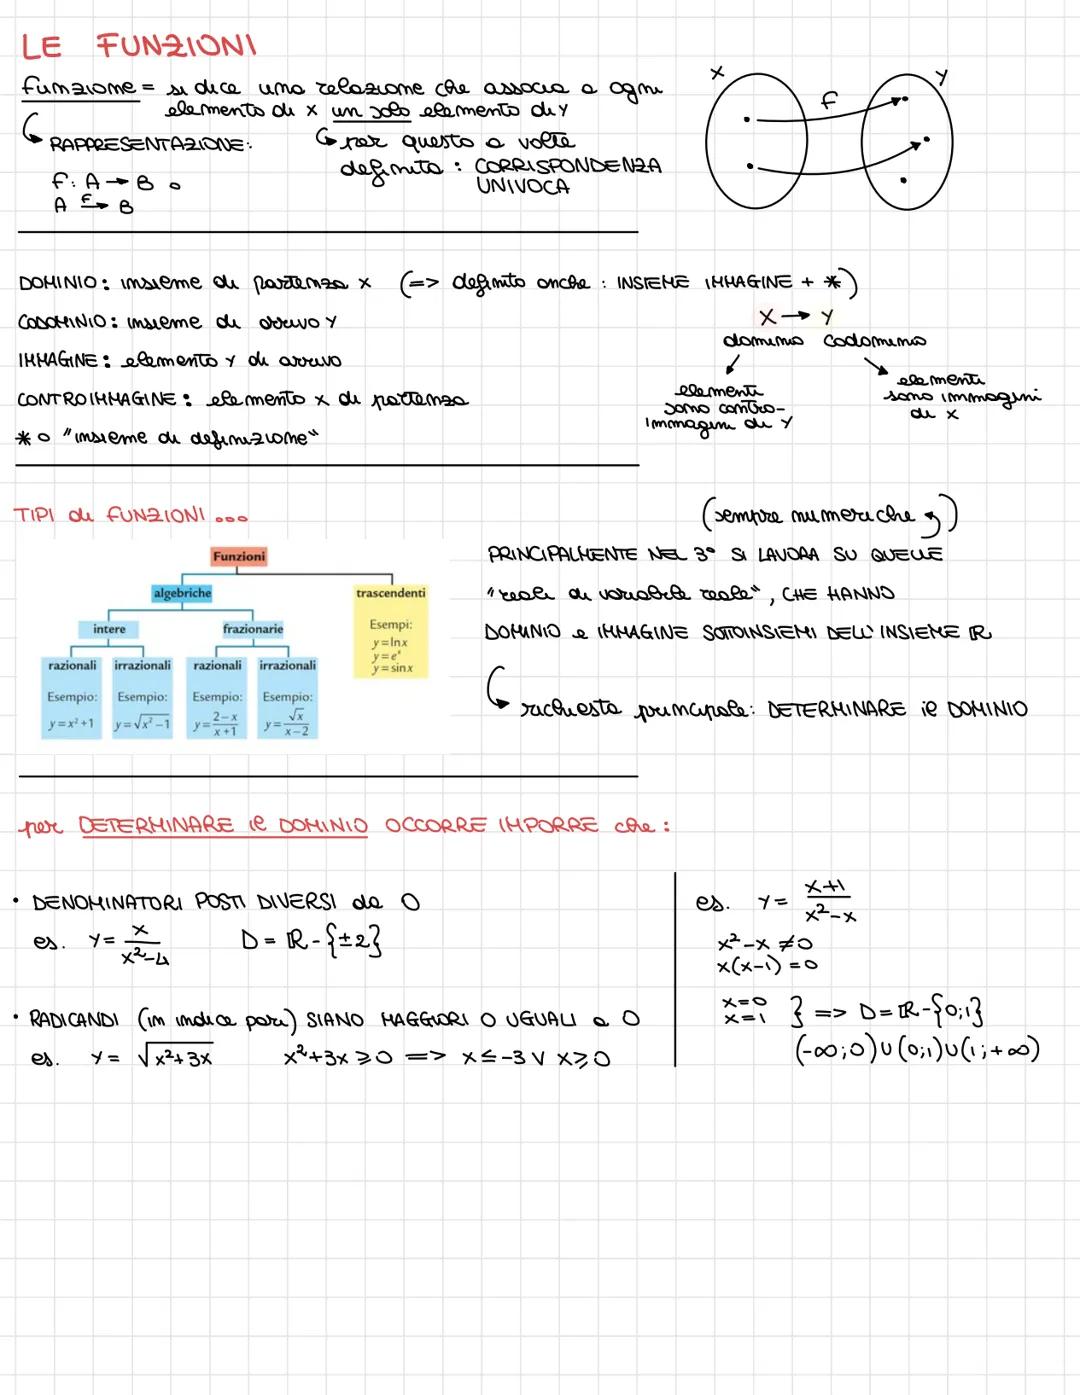 LE FUNZIONI
funzione = si dice una relazione che associa a ogni
elemento di x un solo elemento di y
RAPPRESENTAZIONE:
per questo a volte
definita : CORRISPONDENZA
UNIVOCA
f: A → B o
A f→ B
x
y
f
DOMINIO: insieme di partenza x (=> definito anche : INSIEME IMMAGINE + *)
CODOMINIO: insieme di arrivo y
IMMAGINE: elemento y di arrivo
CONTROIMMAGINE: elemento x di partenza
* o "insieme di definizione"
x → y
dominio codominio
elementi
sono contro-
immagini di y
elementi
sono immagini
di x
TIPI di FUNZIONI ...
Funzioni
algebriche
trascendenti
intere
frazionarie
Esempi:
y = ln x
y = eˣ
y = sin x
razionali irrazionali razionali irrazionali
Esempio: Esempio: Esempio: Esempio:
y = x² + 1 y = √x² − 1 y = 2 − x / x + 1 y = √x / x − 2
(sempre numeriche)
PRINCIPALMENTE NEL 3° SI LAVORA SU QUELLE
"reali di variabile reale", CHE HANNO
DOMINIO e IMMAGINE SOTTOINSIEMI DELL'INSIEME ℝ
richiesta principale: DETERMINARE il DOMINIO
per DETERMINARE il DOMINIO OCCORRE IMPORRE che :
• DENOMINATORI POSTI DIVERSI da 0
es. y = x / x²-4 D = ℝ - {±2}
• RADICANDI (in indice pari) SIANO MAGGIORI O UGUALI a 0
es. y = √x²+3x x²+3x ≥ 0 => x ≤ -3 ∨ x ≥ 0
es. y = x+1 / x²-x
x²-x ≠ 0
x(x-1) = 0
x=0
x=1 } => D = ℝ-{0;1}
(-∞;0)∪(0;1)∪(1;+∞)